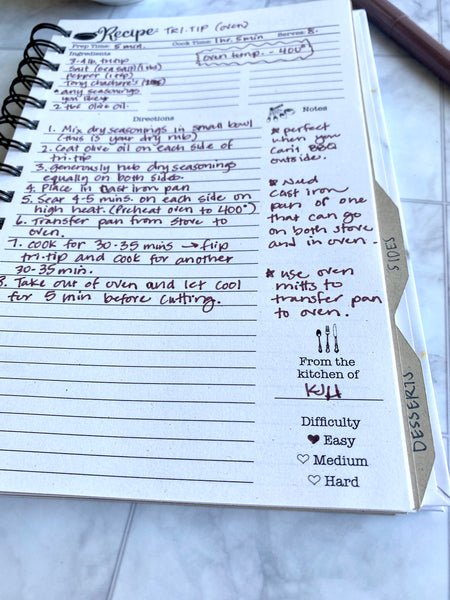 Recipe: TRI.TIP (oven)
Prep Time: 5 min. Cook Time: 1 hr. 5 min Serves: 8.
Ingredients
oven temp... 400°
3-4 lb tritip
Salt (sea salt)
Pepper (1 tsp)
Tony Chachere's
*any seasonings
you like*
2 tbs olive oil.
Directions
1. Mix dry seasonings in small bowl
(this is your dry rub)
2. Coat olive oil on each side of
tri.tip
3. generously rub dry seasonings
equally on both sides.
4. Place in cast iron pan
5. Sear 4-5 mins. on each side on
high heat. (Preheat oven to 400°)
6. Transfer pan from stove to
oven.
7. cook for 30-35 mins → flip
tri.tip and cook for another
30-35 min.
8. Take out of oven and let cool
for 5 min before cutting.
Notes
* perfect
when you
can't BBQ
outside.
* Need
cast iron
pan or one
that can go
on both stove
and in oven.
* use oven
mitts to
transfer pan
to oven.
From the
kitchen of
KJH
Difficulty
Easy
Medium
Hard
SIDES
DESSERTS